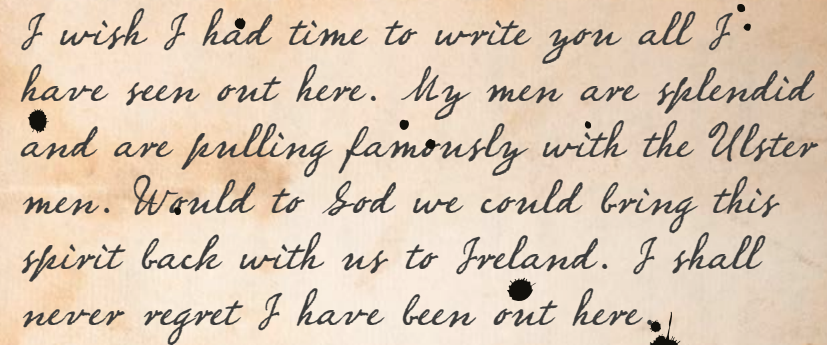 I wish I had time to write you all I
have seen out here. My men are splendid
and are pulling famously with the Ulster
men. Would to God we could bring this
spirit back with us to Ireland. I shall
never regret I have been out here.